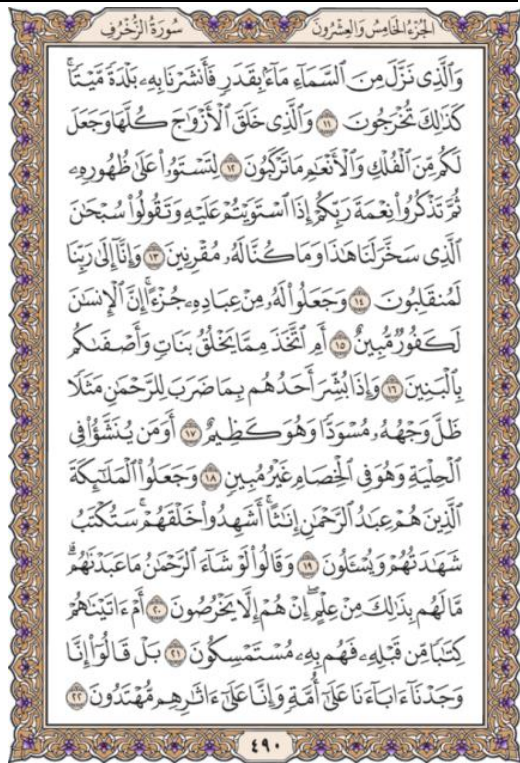 الجُزْءُ الخَامِسُ وَالعِشْرُونَ سُورَةُ الزُّخْرُفِ
وَٱلَّذِى نَزَّلَ مِنَ ٱلسَّمَآءِ مَآءًۢ بِقَدَرٍ فَأَنشَرْنَا بِهِۦ بَلْدَةً مَّيْتًاۚ
كَذَٰلِكَ تُخْرَجُونَ ١١ وَٱلَّذِى خَلَقَ ٱلْأَزْوَٰجَ كُلَّهَا وَجَعَلَ
لَكُم مِّنَ ٱلْفُلْكِ وَٱلْأَنْعَٰمِ مَا تَرْكَبُونَ ١٢ لِتَسْتَوُۥا۟ عَلَىٰ ظُهُورِهِۦ
ثُمَّ تَذْكُرُوا۟ نِعْمَةَ رَبِّكُمْ إِذَا ٱسْتَوَيْتُمْ عَلَيْهِ وَتَقُولُوا۟ سُبْحَٰنَ
ٱلَّذِى سَخَّرَ لَنَا هَٰذَا وَمَا كُنَّا لَهُۥ مُقْرِنِينَ ١٣ وَإِنَّآ إِلَىٰ رَبِّنَا
لَمُنقَلِبُونَ ١٤ وَجَعَلُوا۟ لَهُۥ مِنْ عِبَادِهِۦ جُزْءًاۚ إِنَّ ٱلْإِنسَٰنَ
لَكَفُورٌ مُّبِينٌ ١٥ أَمِ ٱتَّخَذَ مِمَّا يَخْلُقُ بَنَاتٍ وَأَصْفَىٰكُم
بِٱلْبَنِينَ ١٦ وَإِذَا بُشِّرَ أَحَدُهُم بِمَا ضَرَبَ لِلرَّحْمَٰنِ مَثَلًا
ظَلَّ وَجْهُهُۥ مُسْوَدًّا وَهُوَ كَظِيمٌ ١٧ أَوَمَن يُنَشَّؤُا۟ فِى
ٱلْحِلْيَةِ وَهُوَ فِى ٱلْخِصَامِ غَيْرُ مُبِينٍ ١٨ وَجَعَلُوا۟ ٱلْمَلَٰٓئِكَةَ
ٱلَّذِينَ هُمْ عِبَٰدُ ٱلرَّحْمَٰنِ إِنَٰثًاۚ أَشَهِدُوا۟ خَلْقَهُمْۚ سَتُكْتَبُ
شَهَٰدَتُهُمْ وَيُسْـَٔلُونَ ١٩ وَقَالُوا۟ لَوْ شَآءَ ٱلرَّحْمَٰنُ مَا عَبَدْنَٰهُمۗ
مَّا لَهُم بِذَٰلِكَ مِنْ عِلْمٍۖ إِنْ هُمْ إِلَّا يَخْرُصُونَ ٢٠ أَمْ ءَاتَيْنَٰهُمْ
كِتَٰبًا مِّن قَبْلِهِۦ فَهُم بِهِۦ مُسْتَمْسِكُونَ ٢١ بَلْ قَالُوٓا۟ إِنَّا
وَجَدْنَآ ءَابَآءَنَا عَلَىٰٓ أُمَّةٍ وَإِنَّا عَلَىٰٓ ءَاثَٰرِهِم مُّهْتَدُونَ ٢٢
٤٩٠